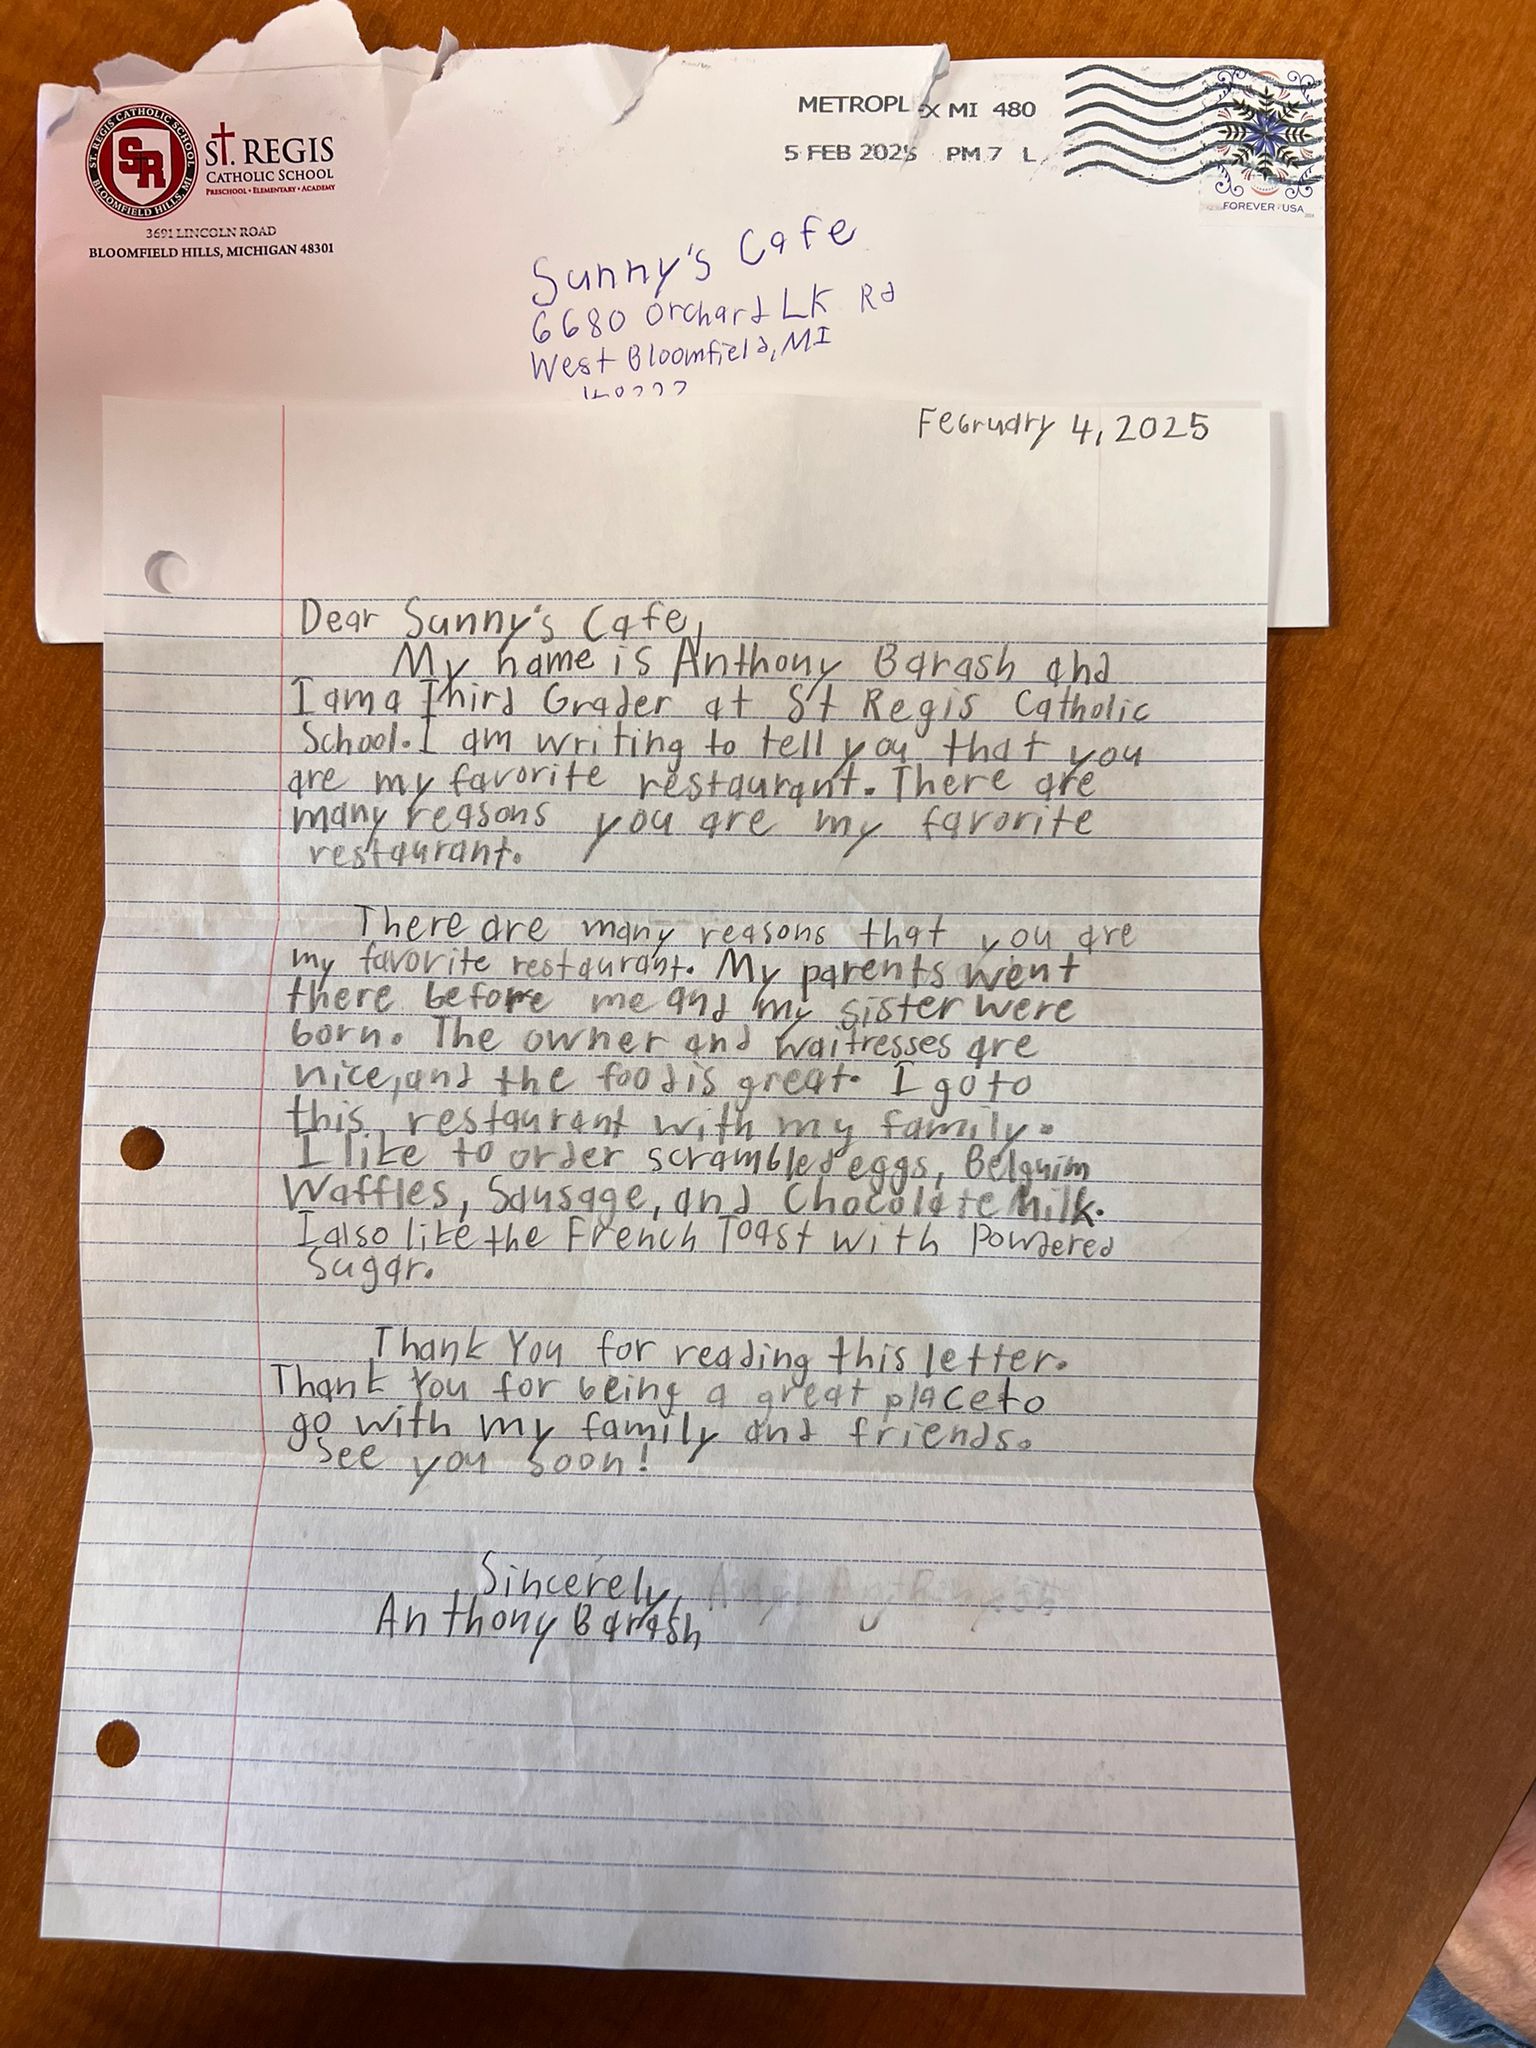 ST. REGIS CATHOLIC SCHOOL
BLOOMFIELD HILLS, MI
SR
ST. REGIS
CATHOLIC SCHOOL
PRESCHOOL • ELEMENTARY • ACADEMY
3691 LINCOLN ROAD
BLOOMFIELD HILLS, MICHIGAN 48301
METROPL EX MI 480
5 FEB 2025 PM 7 L
FOREVER USA
Sunny's Cafe
6680 Orchard LK Rd
West Bloomfield, MI
February 4, 2025
Dear Sunny's Cafe,
My name is Anthony Barash and
I am a Third Grader at St Regis Catholic
School. I am writing to tell you that you
are my favorite restaurant. There are
many reasons you are my favorite
restaurant.
There are many reasons that you are
my favorite restaurant. My parents went
there before me and my sister were
born. The owner and waitresses are
nice, and the food is great. I go to
this restaurant with my family.
I like to order scrambled eggs, Belguim
Waffles, Sausage, and Chocolate Milk.
I also like the French Toast with Powdered
Sugar.
Thank You for reading this letter.
Thank You for being a great place to
go with my family and friends.
See you soon!
Sincerely,
Anthony Barash